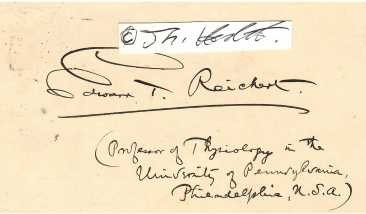 ©
Edward T. Reichert.
(Professor of Physiology in the
University of Pennsylvania,
Philadelphia, U.S.A.)